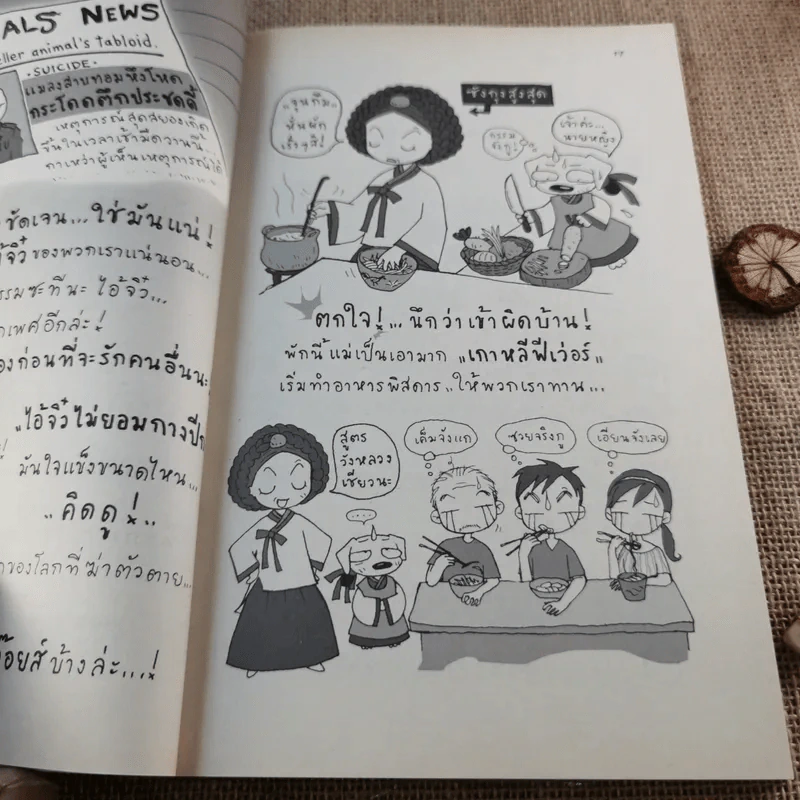 ALS NEWS
ller animal's tabloid.
• SUICIDE •
แมลงสาบทอมหึงโหด
กระโดดตึกประชดดี้
เหตุการณ์สุดสยองเกิด
ขึ้นในเวลาเช้ามืดวานนี้
กาเหว่าผู้เห็นเหตุการณ์ได้
ชัดเจน...ใช่มันแน่!
จิ๋วของพวกเราแน่นอน...
รรมซะที่นะ ไอ้จิ๋ว...
เพศอีกล่ะ!
องก่อนที่จะรักคนอื่นนะ
"ไอ้จิ๋วไม่ยอมกางปีก
มันใจแข็งขนาดไหน...
..คิดดู!..
ของโลกที่ฆ่าตัวตาย...
อยส์บ้างล่ะ...!
"จุนกึม"
หั่นผัก
เร็วๆสิ!
ซังกุงสูงสุด
ธรรม
เจ้าค่ะ...
นายหญิง
ตกใจ!... นึกว่าเข้าผิดบ้าน!
พักนี้แม่เป็นเอามาก "เกาหลีฟีเว่อร์"
เริ่มทำอาหารพิสดาร..ให้พวกเราทาน...
สูตร
วังหลวง
เชียวนะ
....
เค็มจังแก
ซวยจริงกู
เอียนจังเลย